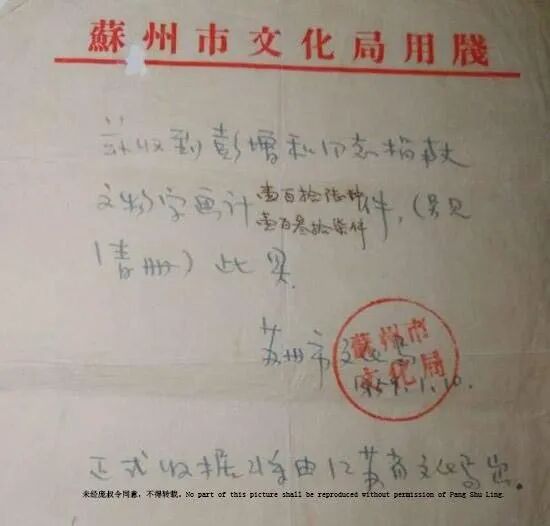 蘇州市文化局用牋
兹收到彭增和同志捐献
文物字画计壹百拾陆种
壹百叁拾柒件
件,(另见
清册)此具.
苏州市文化局
蘇州市
文化局
1959.1.10.
正式收据将由江苏省文化局出.
未经庞叔令同意，不得转载。No part of this picture shall be reproduced without permission of Pang Shu Ling.